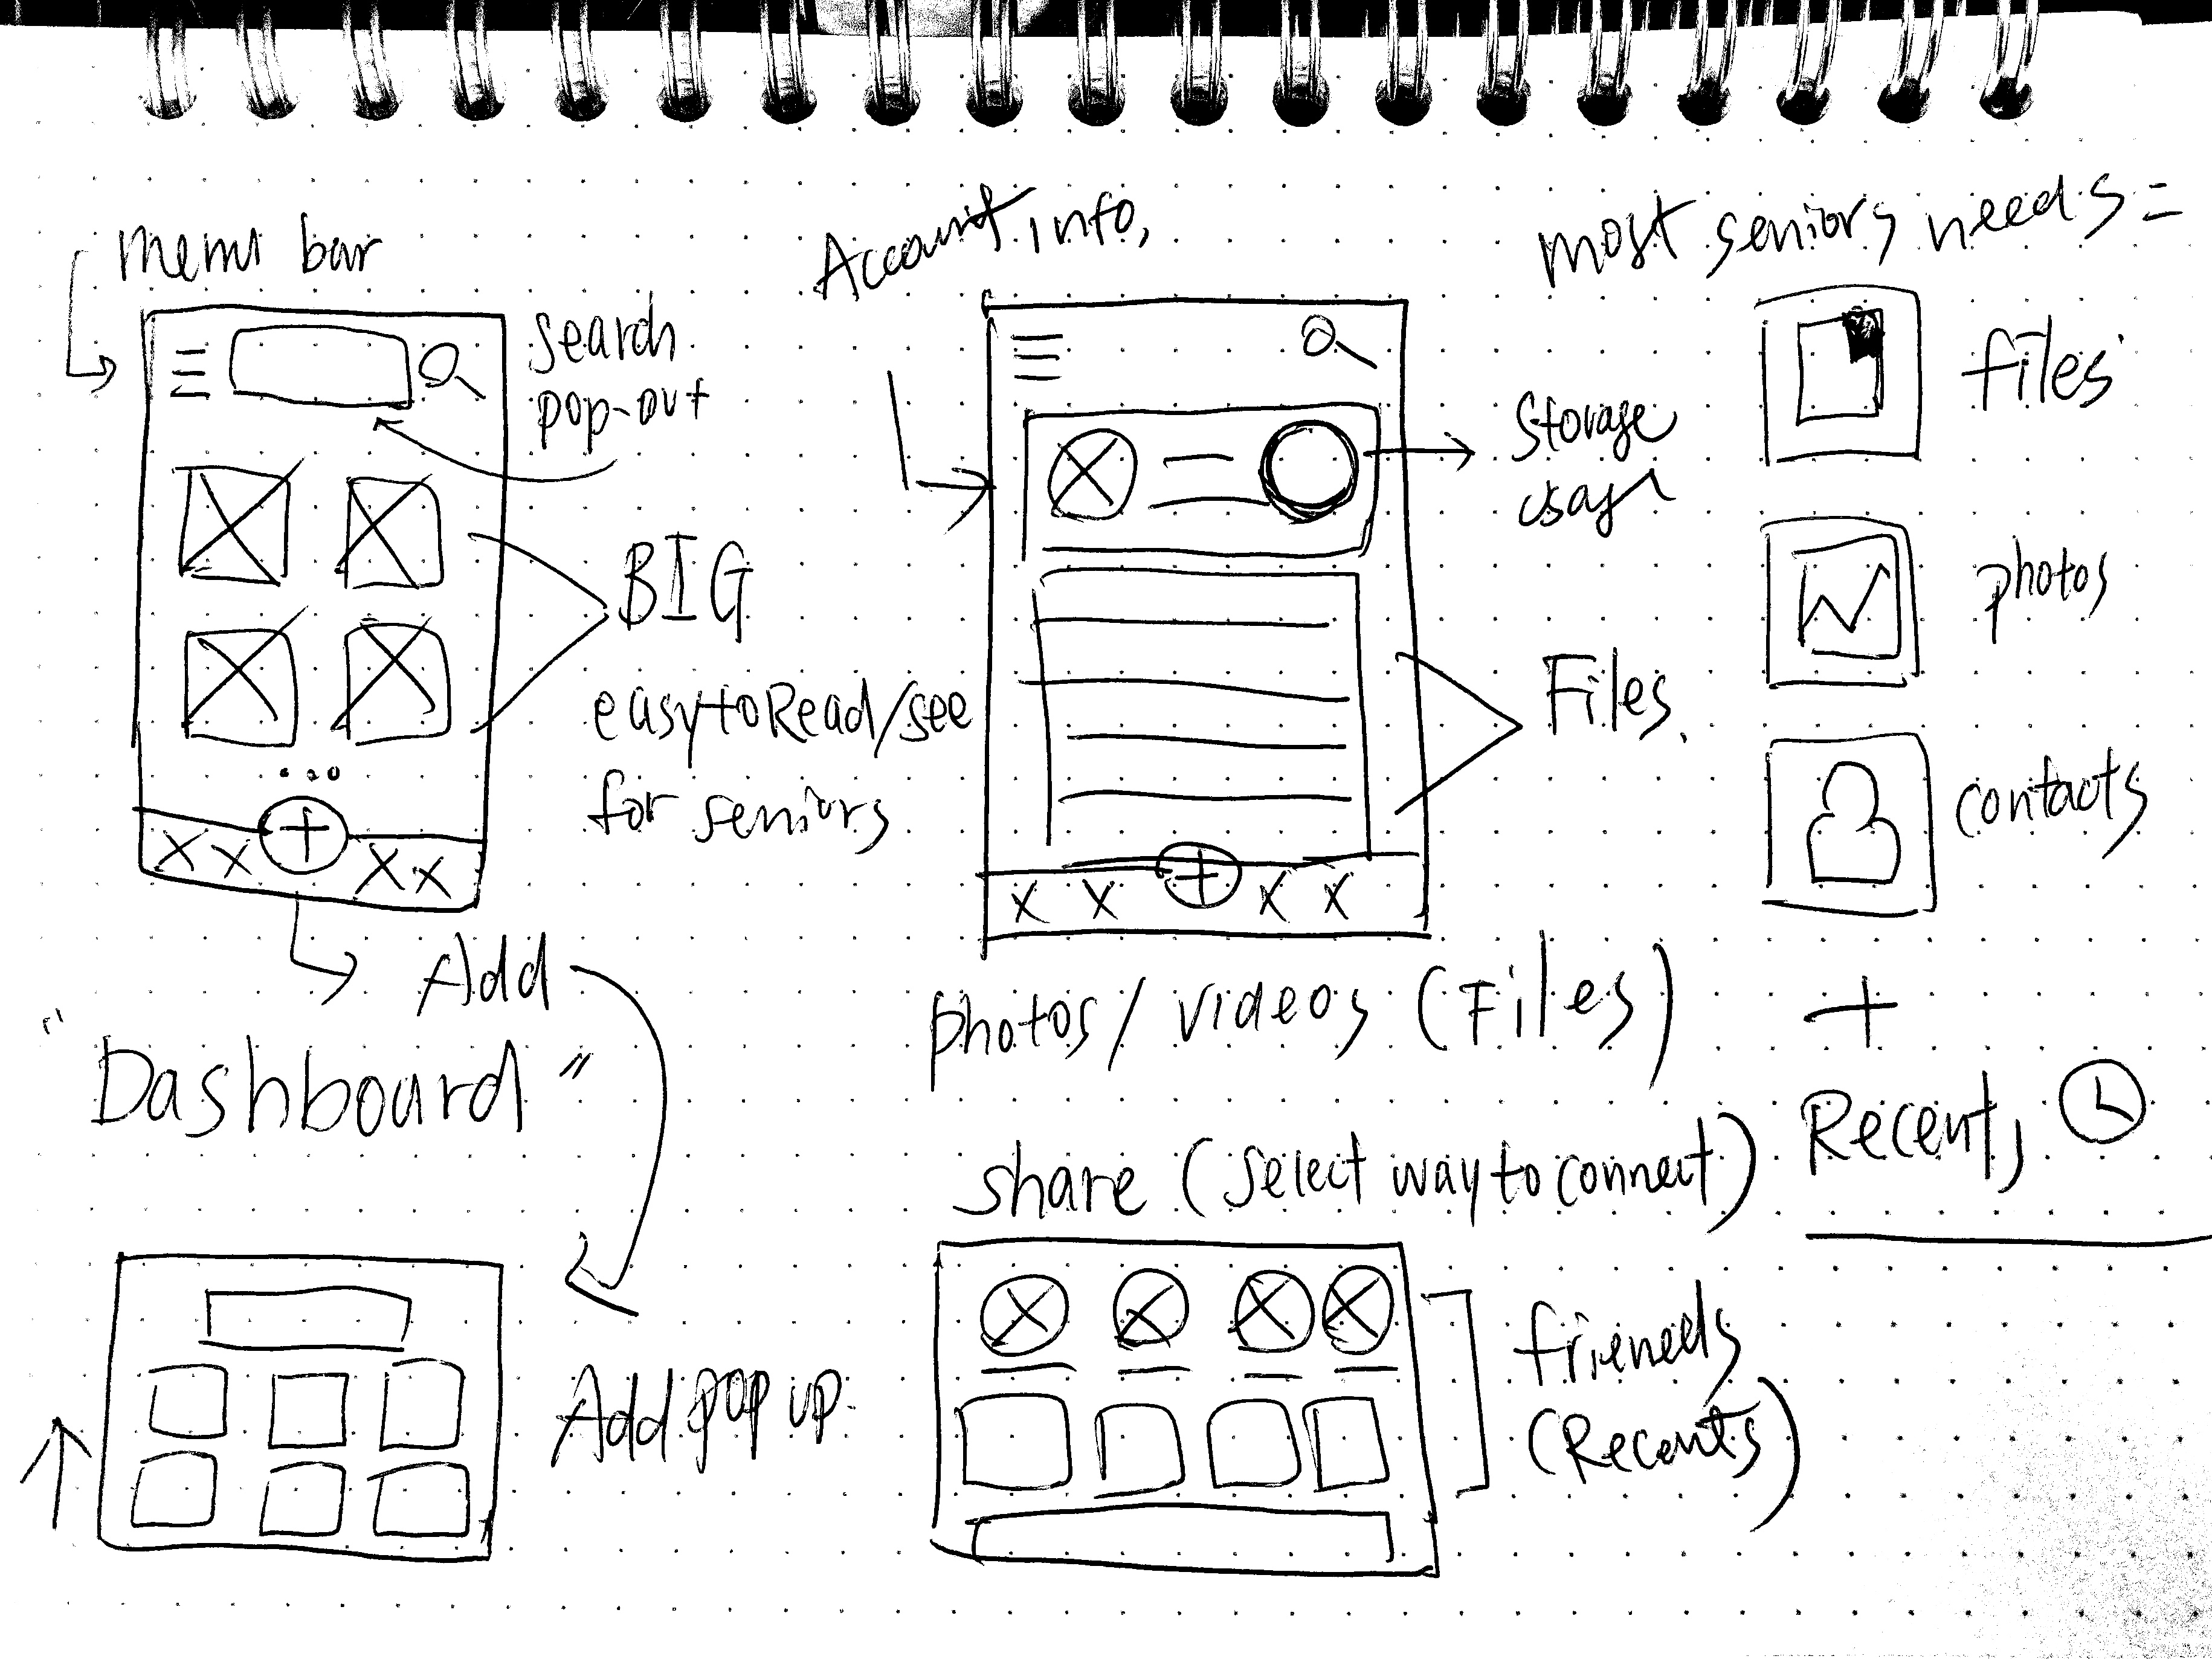 menu bar
search
pop-out
BIG
easy to Read/see
for seniors
Add
"Dashboard"
Add pop up
Account info,
storage
usage
Files.
photos/videos (Files)
share (select way to connect)
frieneds
(Recents)
most seniors needs =
files
photos
contacts
+
Recent,